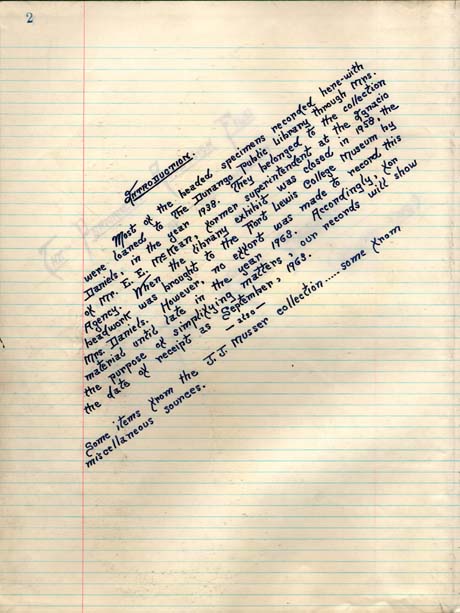 2
INTRODUCTION.
Most of the beaded specimens recorded here-with
were loaned to The Durango Public Library through Mrs.
Daniels, in the year 1938. They belonged to the collection
of Mr. E. E. McKean, former superintendent at the Ignacio
Agency. When the library exhibit was closed in 1958, the
beadwork was brought to the Fort Lewis College Museum by
Mrs. Daniels. However, no effort was made to record this
material until late in the year 1963. Accordingly, for
the purpose of simplifying matters, our records will show
the date of receipt as September, 1963.
—also—
Some items from the J.J. Musser collection.....some from
miscellaneous sources.